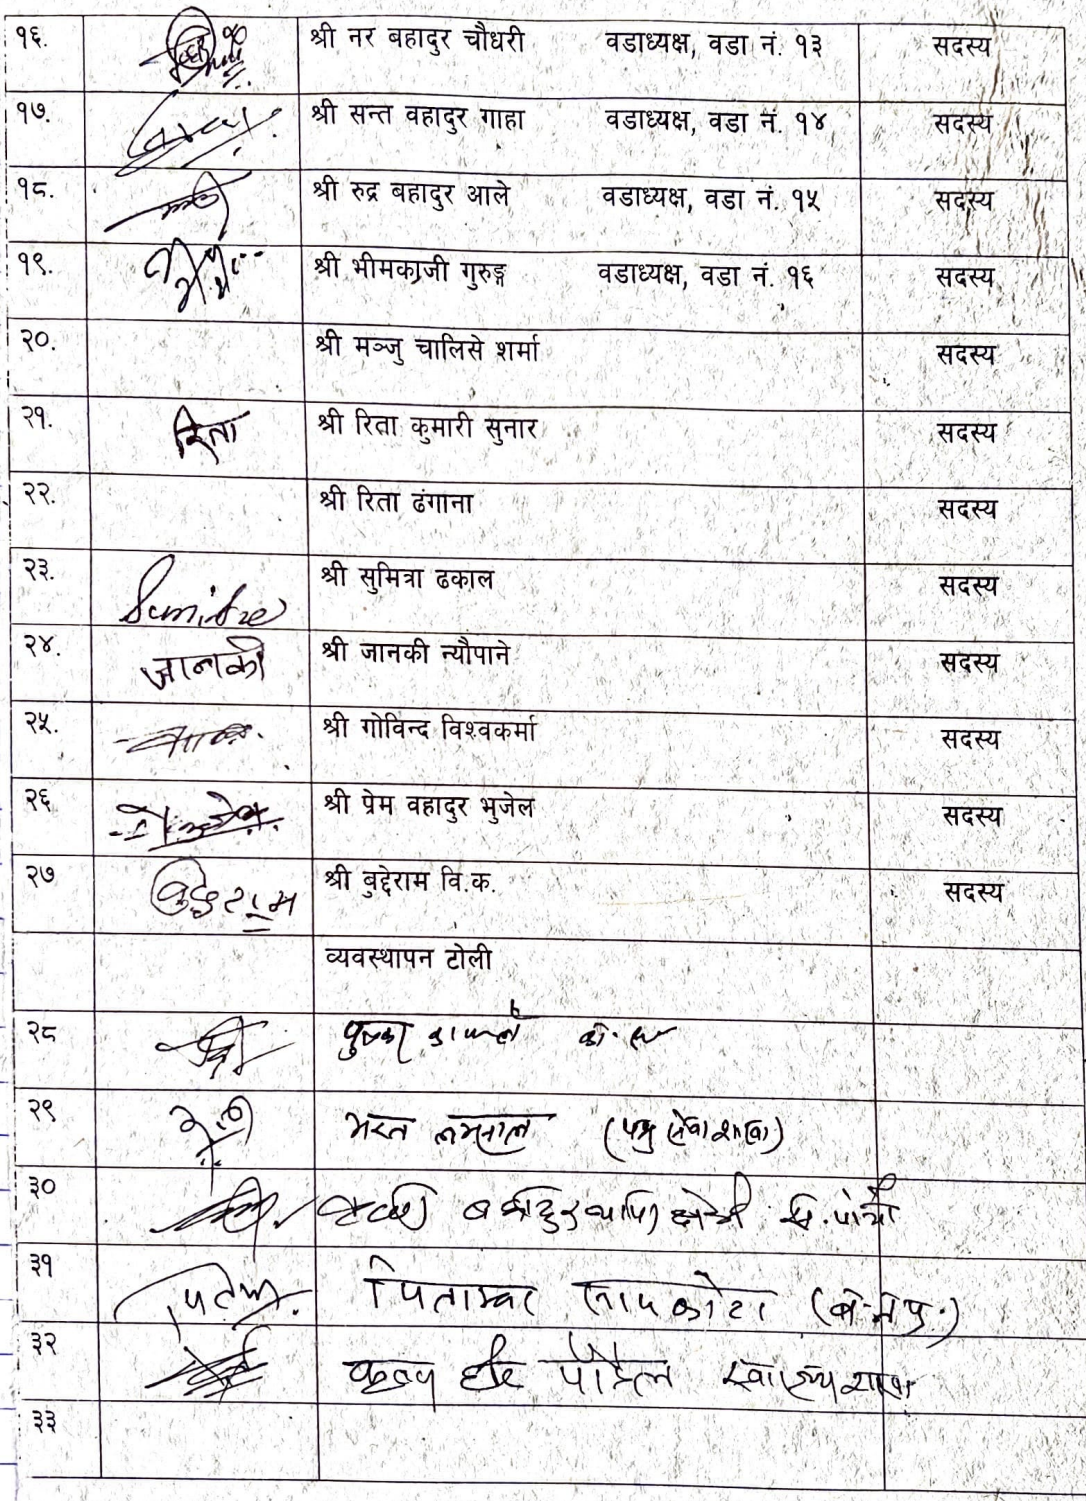 १६. श्री नर बहादुर चौधरी वडाध्यक्ष, वडा नं. १३ सदस्य
१७. श्री सन्त वहादुर गाहा वडाध्यक्ष, वडा नं. १४ सदस्य
१८. श्री रुद्र बहादुर आले वडाध्यक्ष, वडा नं. १५ सदस्य
१९. श्री भीमकाजी गुरुङ्ग वडाध्यक्ष, वडा नं. १६ सदस्य
२०. श्री मञ्जु चालिसे शर्मा सदस्य
२१. रिता श्री रिता कुमारी सुनार सदस्य
२२. श्री रिता ढंगाना सदस्य
२३. श्री सुमित्रा ढकाल सदस्य
२४. जानकी श्री जानकी न्यौपाने सदस्य
२५. श्री गोविन्द विश्वकर्मा सदस्य
२६ श्री प्रेम वहादुर भुजेल सदस्य
२७ बुद्देराम श्री बुद्देराम वि.क. सदस्य
व्यवस्थापन टोली
२८
२९ भरत लम्साल (पशु सेवा शाखा)
३०
३१ पिताम्बर सापकोटा
३२ पौडेल स्वास्थ्य शाखा
३३